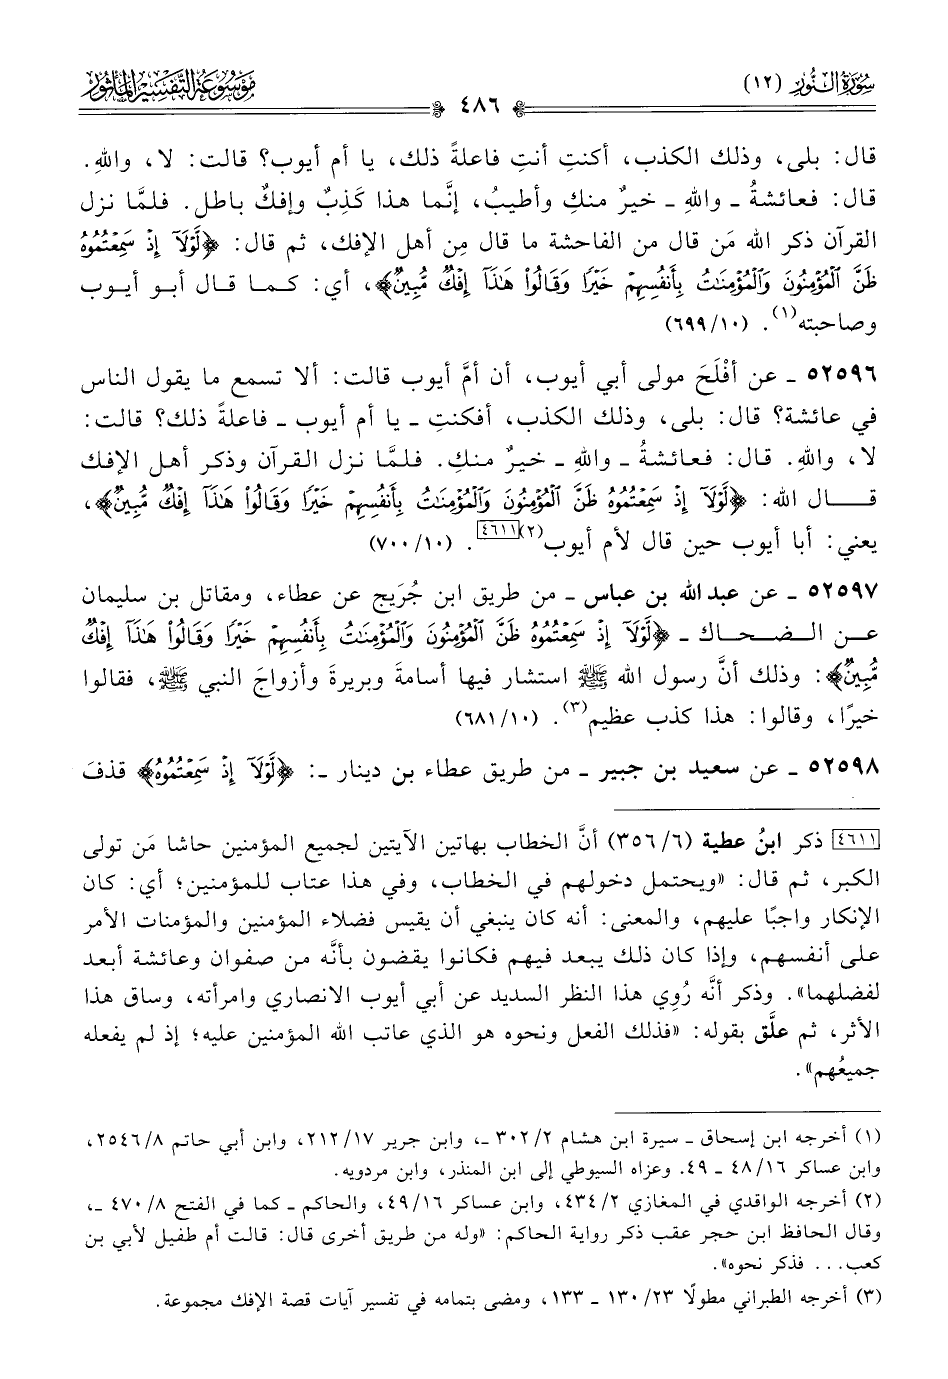 سُورَةُ النُّورِ (١٢)
٤٨٦
مَوْسُوعَة التَّفْسِير المَأْثُور
قال: بلى، وذلك الكذب، أكنتِ أنتِ فاعلةً ذلك، يا أم أيوب؟ قالت: لا، واللهِ.
قال: فعائشةُ ـ واللهِ ـ خيرٌ منكِ وأطيبُ، إنَّما هذا كَذِبٌ وإفكٌ باطل. فلمَّا نزل
القرآن ذكر الله مَن قال من الفاحشة ما قال مِن أهل الإفك، ثم قال: ﴿لَّوْلَآ إِذْ سَمِعْتُمُوهُ
ظَنَّ الْمُؤْمِنُونَ وَالْمُؤْمِنَٰتُ بِأَنفُسِهِمْ خَيْرًا وَقَالُوا۟ هَٰذَآ إِفْكٌ مُّبِينٌ﴾، أي: كما قال أبو أيوب
وصاحبته(١). (١٠/ ٦٩٩)
٥٢٥٩٦ ـ عن أفْلَحَ مولى أبي أيوب، أن أمَّ أيوب قالت: ألا تسمع ما يقول الناس
في عائشة؟ قال: بلى، وذلك الكذب، أفكنتِ ـ يا أم أيوب ـ فاعلةً ذلك؟ قالت:
لا، واللهِ. قال: فعائشةُ ـ واللهِ ـ خيرٌ منكِ. فلمَّا نزل القرآن وذكر أهل الإفك
قال الله: ﴿لَّوْلَآ إِذْ سَمِعْتُمُوهُ ظَنَّ الْمُؤْمِنُونَ وَالْمُؤْمِنَٰتُ بِأَنفُسِهِمْ خَيْرًا وَقَالُوا۟ هَٰذَآ إِفْكٌ مُّبِينٌ﴾،
يعني: أبا أيوب حين قال لأم أيوب(٢)[٤٦١١]. (١٠/ ٧٠٠)
٥٢٥٩٧ ـ عن عبد الله بن عباس ـ من طريق ابن جُرَيج عن عطاء، ومقاتل بن سليمان
عن الضحاك ـ ﴿لَّوْلَآ إِذْ سَمِعْتُمُوهُ ظَنَّ الْمُؤْمِنُونَ وَالْمُؤْمِنَٰتُ بِأَنفُسِهِمْ خَيْرًا وَقَالُوا۟ هَٰذَآ إِفْكٌ
مُّبِينٌ﴾: وذلك أنَّ رسول الله ﷺ استشار فيها أسامةَ وبريرةَ وأزواجَ النبي ﷺ، فقالوا
خيرًا، وقالوا: هذا كذب عظيم(٣). (١٠/ ٦٨١)
٥٢٥٩٨ ـ عن سعيد بن جبير ـ من طريق عطاء بن دينار ـ: ﴿لَّوْلَآ إِذْ سَمِعْتُمُوهُ﴾ قذفَ
[٤٦١١] ذكر ابنُ عطية (٦/ ٣٥٦) أنَّ الخطاب بهاتين الآيتين لجميع المؤمنين حاشا مَن تولى
الكبر، ثم قال: «ويحتمل دخولهم في الخطاب، وفي هذا عتاب للمؤمنين؛ أي: كان
الإنكار واجبًا عليهم، والمعنى: أنه كان ينبغي أن يقيس فضلاء المؤمنين والمؤمنات الأمر
على أنفسهم، وإذا كان ذلك يبعد فيهم فكانوا يقضون بأنَّه من صفوان وعائشة أبعد
لفضلهما». وذكر أنَّه رُوِي هذا النظر السديد عن أبي أيوب الانصاري وامرأته، وساق هذا
الأثر، ثم علَّق بقوله: «فذلك الفعل ونحوه هو الذي عاتب الله المؤمنين عليه؛ إذ لم يفعله
جميعُهم».
(١) أخرجه ابن إسحاق ـ سيرة ابن هشام ٢/ ٣٠٢ ـ، وابن جرير ١٧/ ٢١٢، وابن أبي حاتم ٨/ ٢٥٤٦،
وابن عساكر ١٦/ ٤٨ ـ ٤٩. وعزاه السيوطي إلى ابن المنذر، وابن مردويه.
(٢) أخرجه الواقدي في المغازي ٢/ ٤٣٤، وابن عساكر ١٦/ ٤٩، والحاكم ـ كما في الفتح ٨/ ٤٧٠ ـ،
وقال الحافظ ابن حجر عقب ذكر رواية الحاكم: «وله من طريق أخرى قال: قالت أم طفيل لأبي بن
كعب... فذكر نحوه».
(٣) أخرجه الطبراني مطولًا ٢٣/ ١٣٠ ـ ١٣٣، ومضى بتمامه في تفسير آيات قصة الإفك مجموعة.